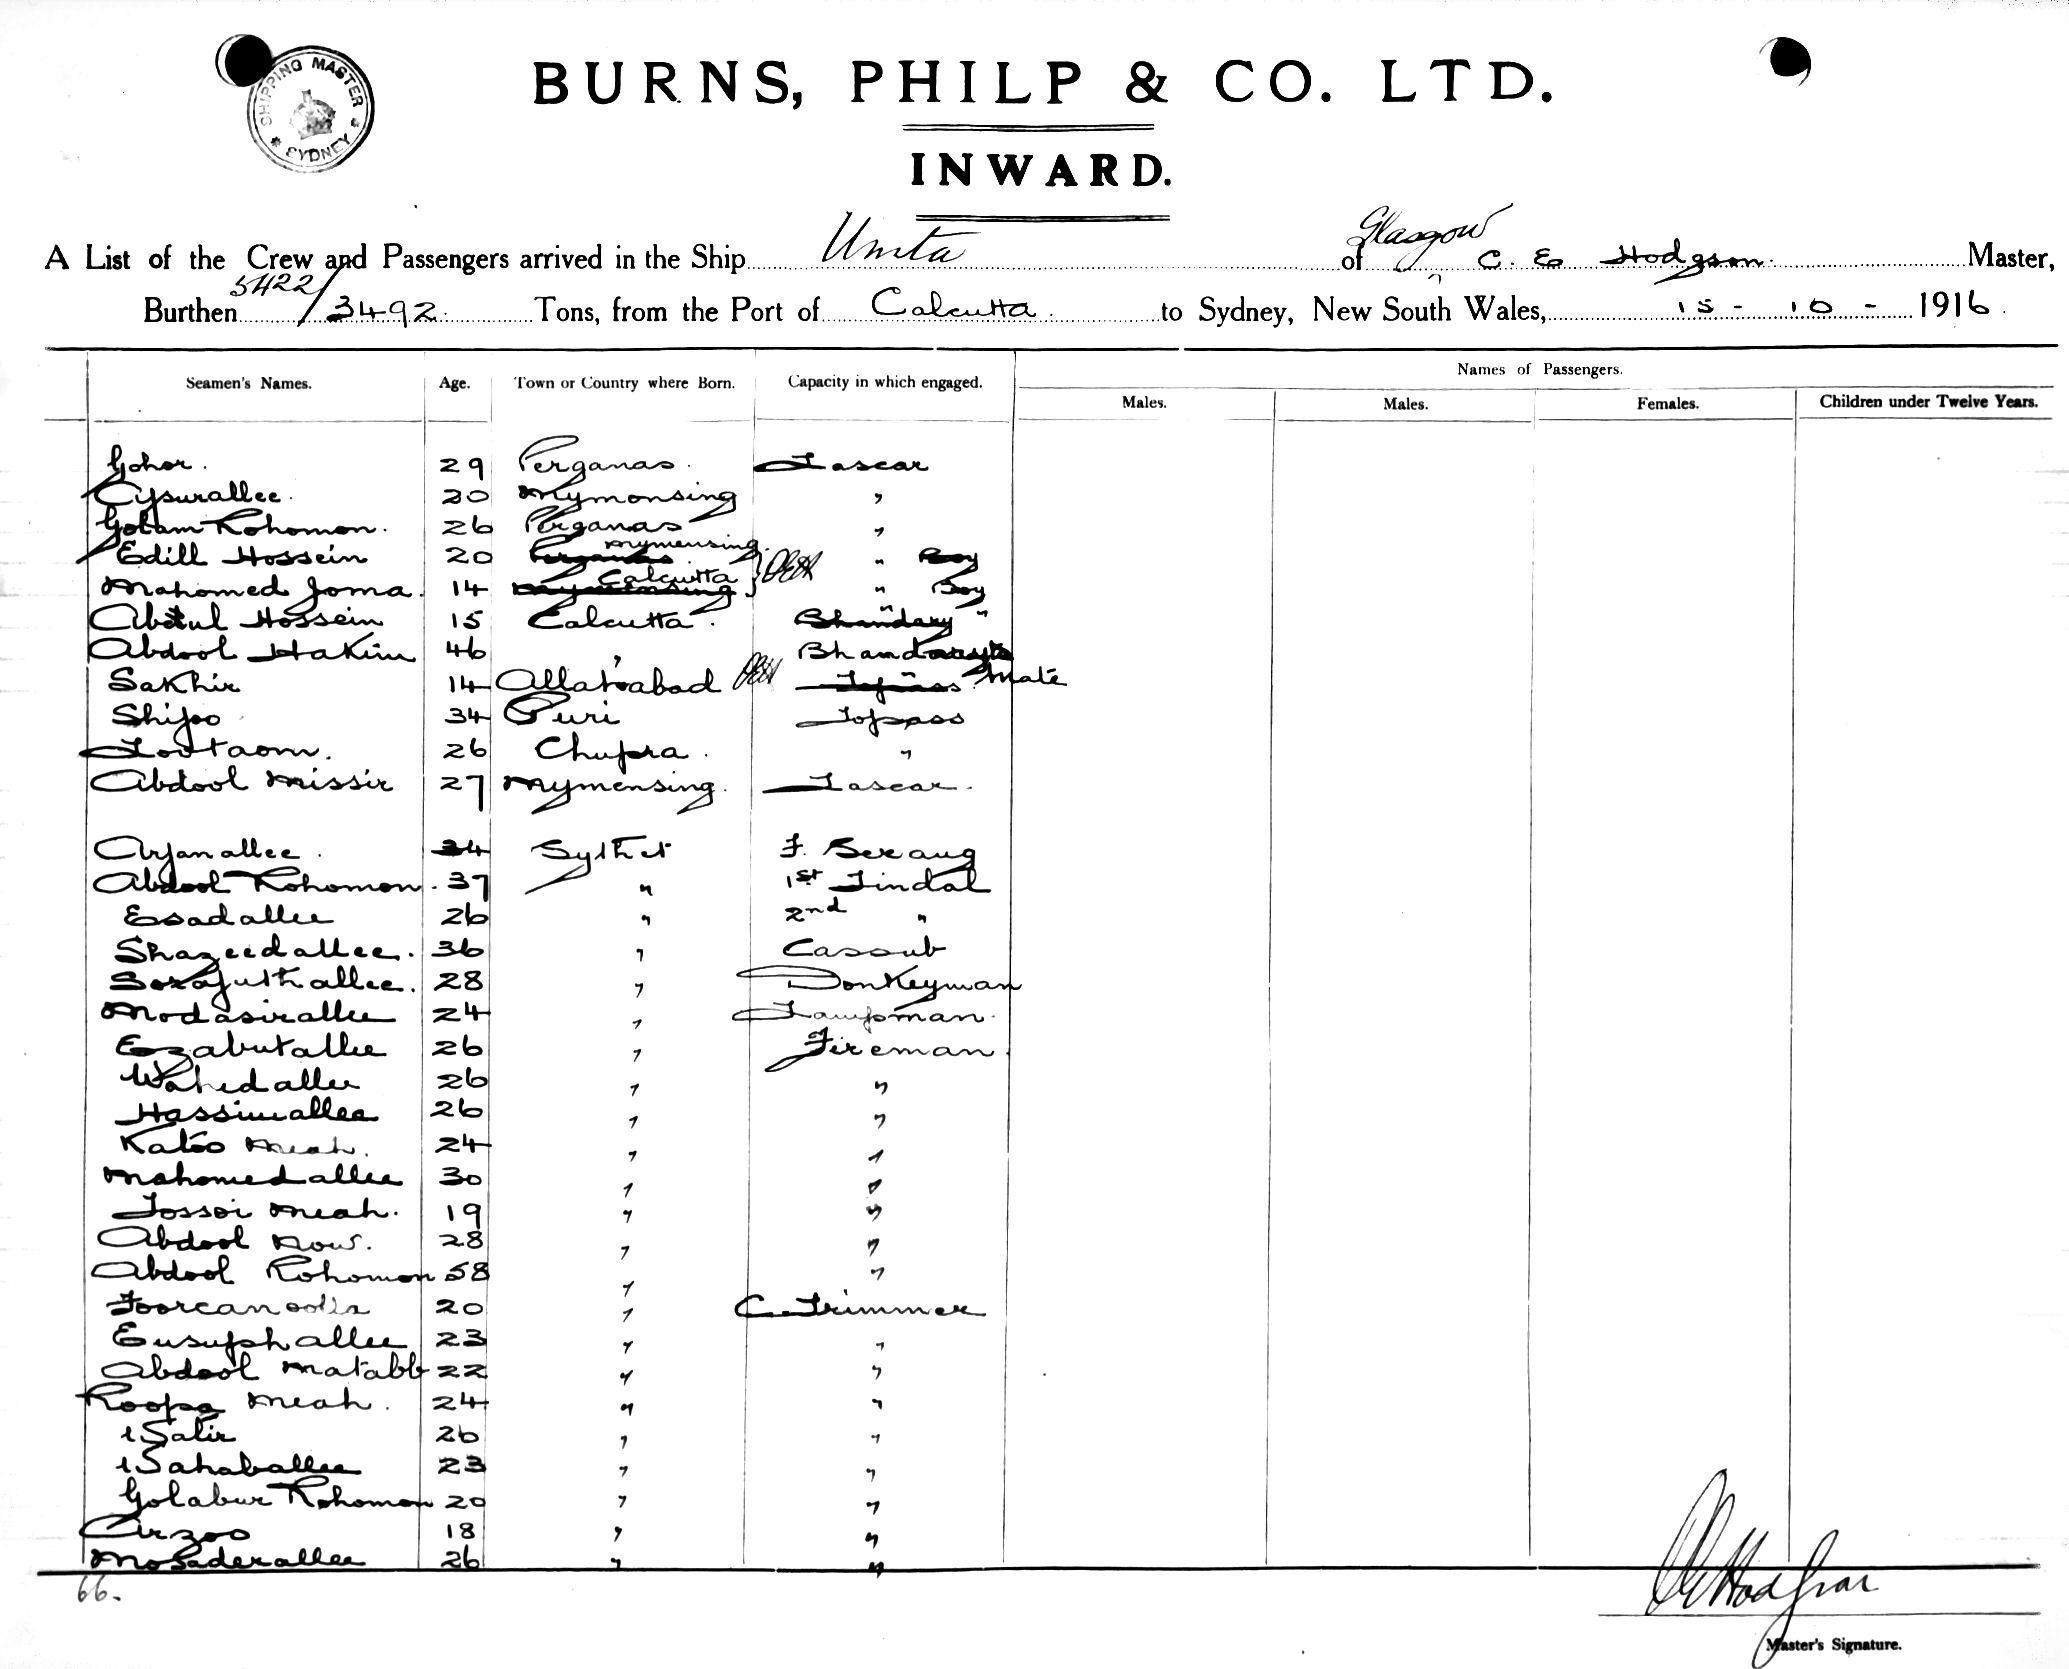 SHIPPING MASTER
SYDNEY
BURNS, PHILP & CO. LTD.
INWARD.
A List of the Crew and Passengers arrived in the Ship Umta of Glasgow C. E. Hodgson Master,
Burthen 5422/3492 Tons, from the Port of Calcutta to Sydney, New South Wales, 15 - 10 - 1916.
Names of Passengers.
Seamen's Names. Age. Town or Country where Born. Capacity in which engaged. Males. Males. Females. Children under Twelve Years.
Gohor. 29 Perganas. Lascar
Cysurallee. 20 Mymonsing "
Golam Rohomon. 26 Perganas "
Edill Hossein 20 Perganas Mymensing " Boy
Mahomed Joma. 14 Mymensing Calcutta " Boy
Abdul Hossein 15 Calcutta. Bhandary " "
Abdool Hakim 46 " Bhandarys Mate
Sakhir 14 Allahabad Topass "
Shipo 34 Puri Topass
Tovtaom. 26 Chupra. "
Abdool Missir 27 Mymensing. Lascar.
Arjanallee. 34 Sylhet F. Serang
Abdool Rohomon. 37 " 1st Tindal
Esadallee 26 " 2nd "
Shazeedallee. 36 " Cassub
Sorafuthallee. 28 " Donkeyman
Modasirallee 24 " Lampman.
Ezabutallee 26 " Fireman.
Wahedallee 26 " "
Hassimallee 26 " "
Kaloo Meah. 24 " "
Mahomedallee 30 " "
Tossoi Meah. 19 " "
Abdool Nour. 28 " "
Abdool Rohomon 58 " "
Toorcanoolla 20 " C. Trimmer
Eusuphallee 23 " "
Abdool Matabb 22 " "
Roopa Meah. 24 " "
Salir 26 " "
Sahaballee 23 " "
Golabur Rohomon 20 " "
Arzoo 18 " "
Mosaderallee 26 " "
66.
C E Hodgson
Master's Signature.